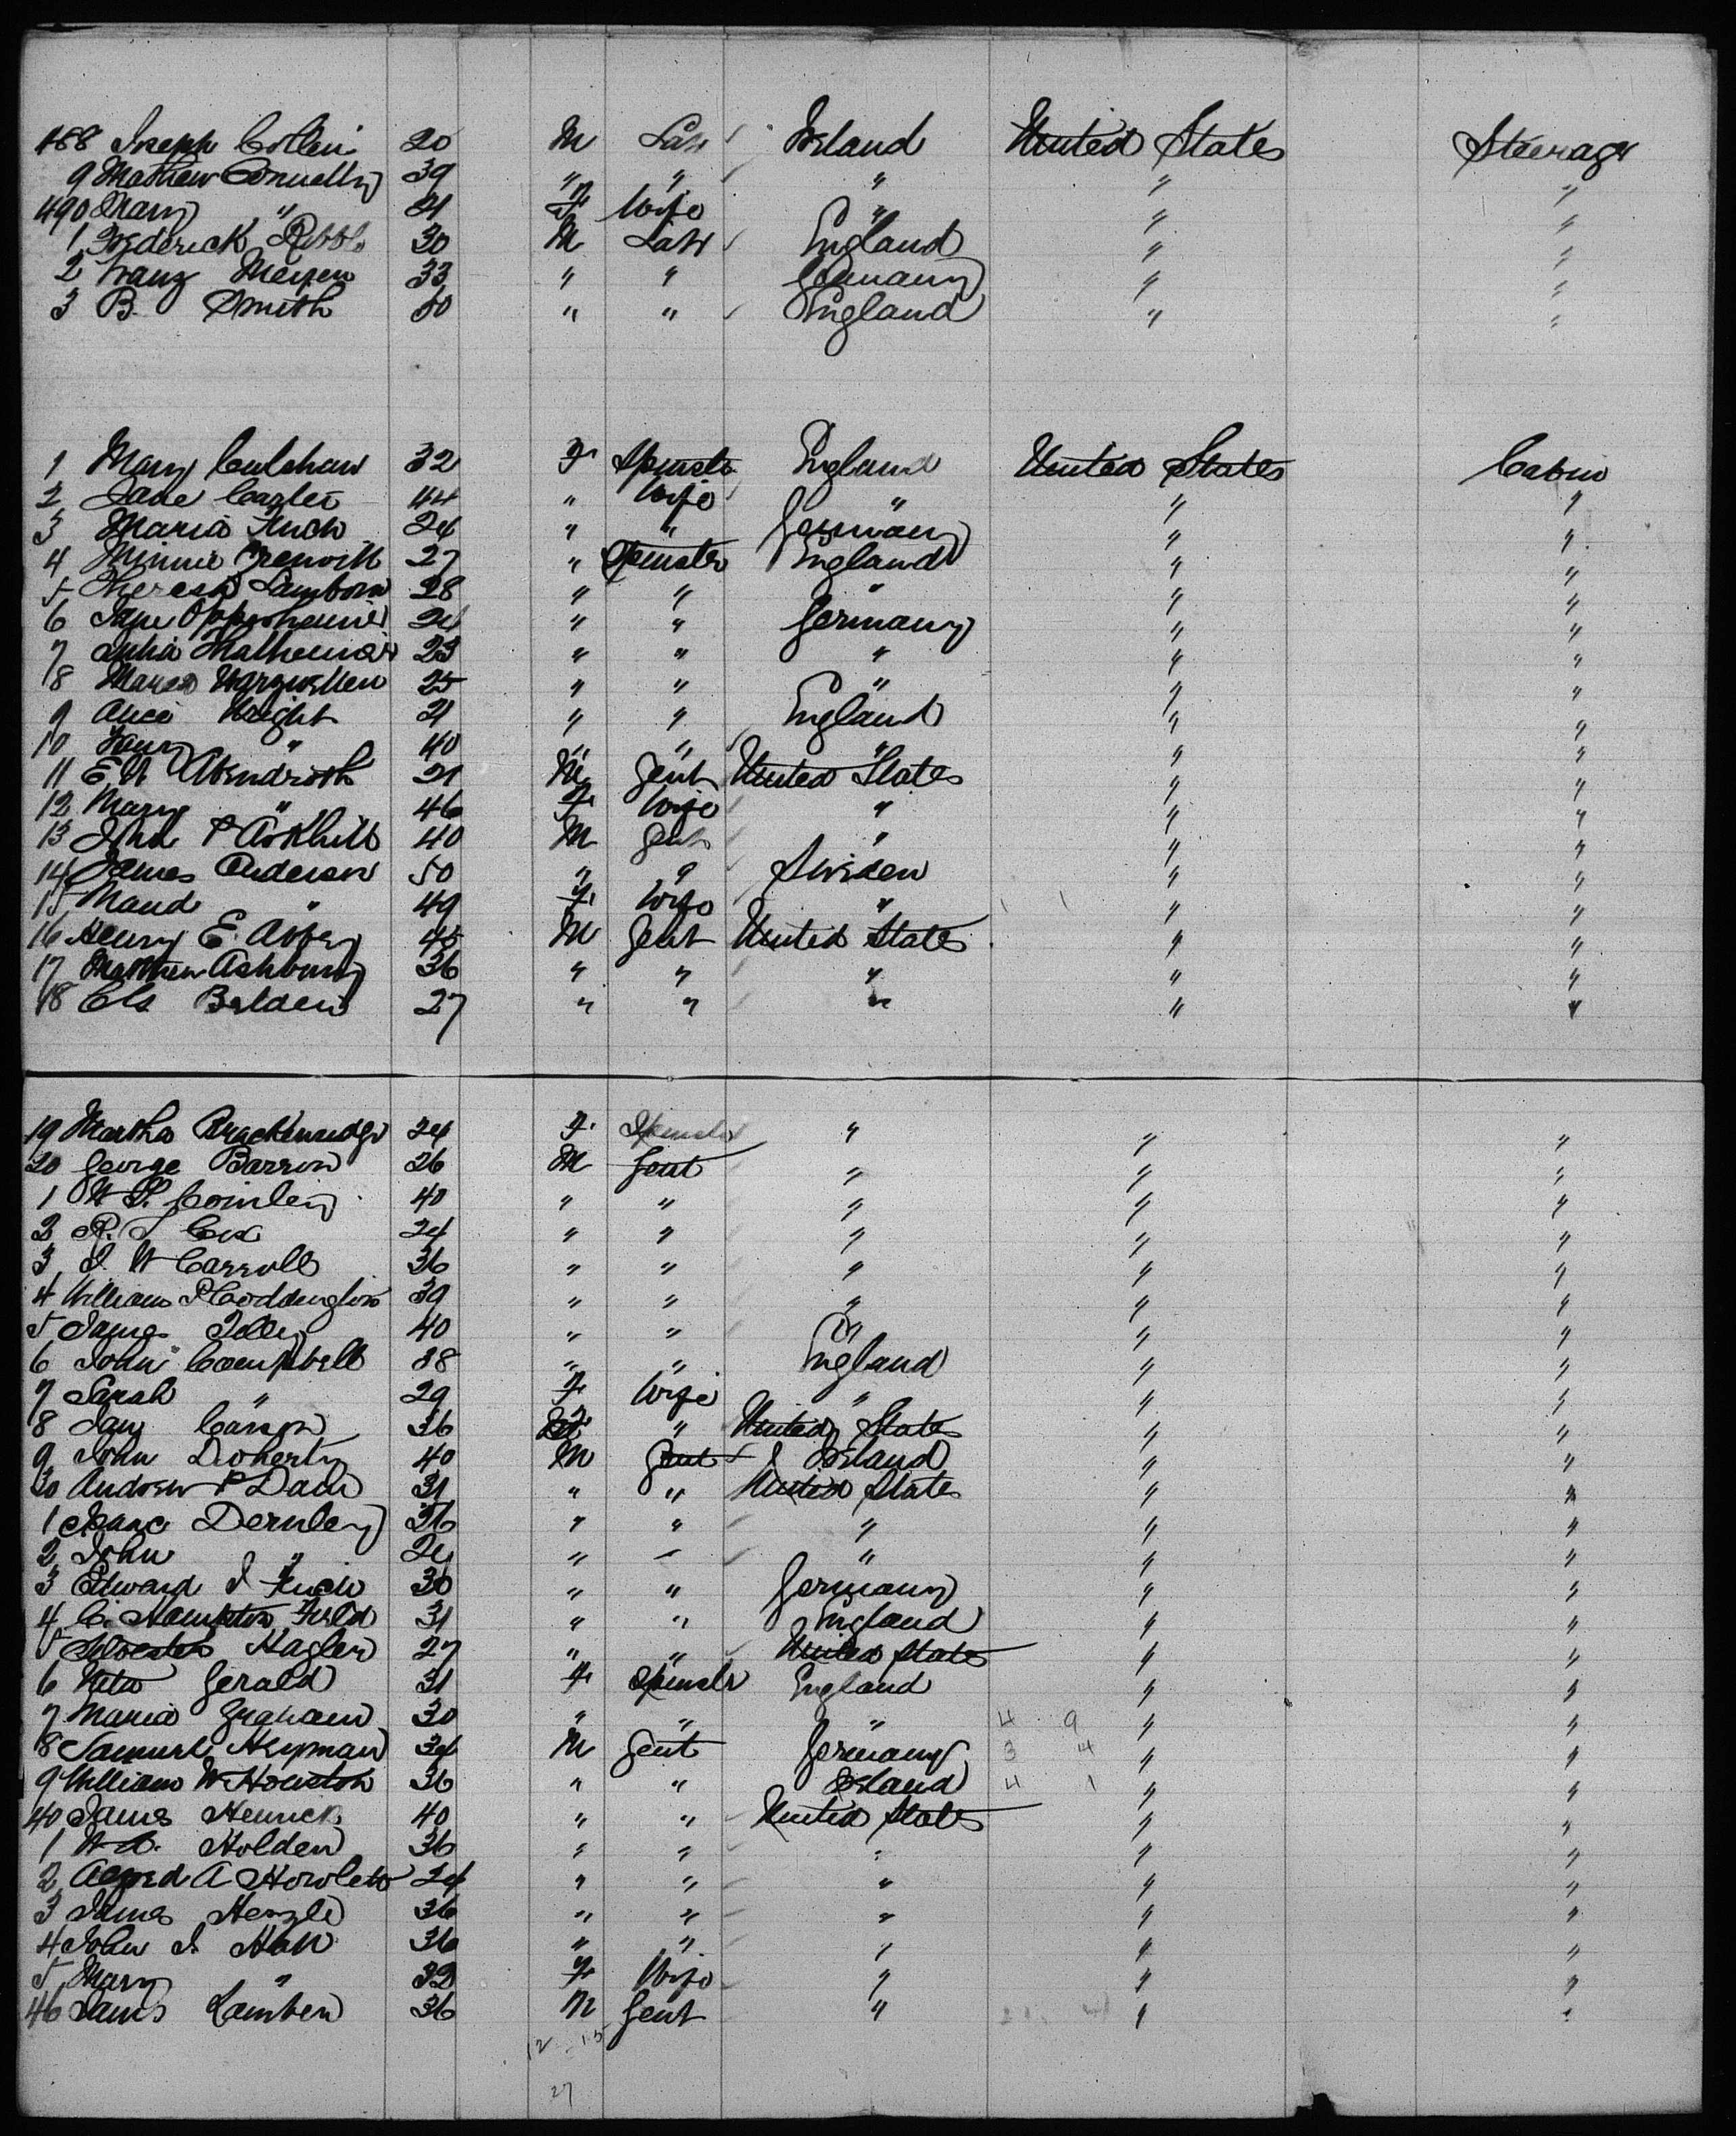 488 Joseph Collin 20 M Lab Ireland United States Steerage
9 Mathew Connelly 39 " " " " "
490 Mary " 21 F Wife " " "
1 Frederick 30 M Lab England " "
2 Franz Meyen 33 " " Germany " "
3 B. Smith 50 " " England " "
1 Mary Culshaw 32 F Spinster England United States Cabin
2 Jane Carter 44 " Wife " " "
3 Maria Finch 24 " " Germany " "
4 Minnie 27 " Spinster England " "
5 Theresa Lamborn 28 " " " " "
6 Jane Oppenheimer 24 " " Germany " "
7 Julia 23 " " " " "
8 25 " " " " "
9 Alice Wright 21 " " England " "
10 " 40 " " " " "
11 E. W Abendroth 21 M Gent United States " "
12 Mary " 46 F Wife " " "
13 P 40 M Gent " " "
14 James Anderson 50 " " Sweden " "
15 Maud " 49 F Wife " " "
16 Henry E. Abbey 45 M Gent United States " "
17 Matthew Ashbury 36 " " " " "
18 27 " " " " "
19 Martha 24 F Spinster " " "
20 George Barron 26 M Gent " " "
1 40 " " " " "
2 R. 24 " " " " "
3 J. W Carroll 36 " " " " "
4 William P Coddington 39 " " " " "
5 James 40 " " " " "
6 John Campbell 38 " " England " "
7 Sarah " 29 F Wife " " "
8 Carson 36 F " United States " "
9 John Doherty 40 M Gent Ireland " "
30 Andrew P 31 " " United States " "
1 Isaac Dernley 36 " " " " "
2 John " 24 " " " " "
3 Edward J Finch 30 " " Germany " "
4 C. Hampton Field 31 " " England " "
5 27 " " United States " "
6 Gerald 31 F Spinster England " "
7 Maria Graham 30 " " " 4 9 " "
8 Samuel Heyman 34 M Gent Germany 3 4 " "
9 William W Houston 36 " " Ireland 4 1 " "
40 James Henrick 40 " " United States " "
1 Holden 36 " " " " "
2 Alfred A Howlett 24 " " " " "
3 James 36 " " " " "
4 John J. 36 " " " " "
5 Mary " 32 F Wife " " "
46 James 36 M Gent " " "
12 15
27